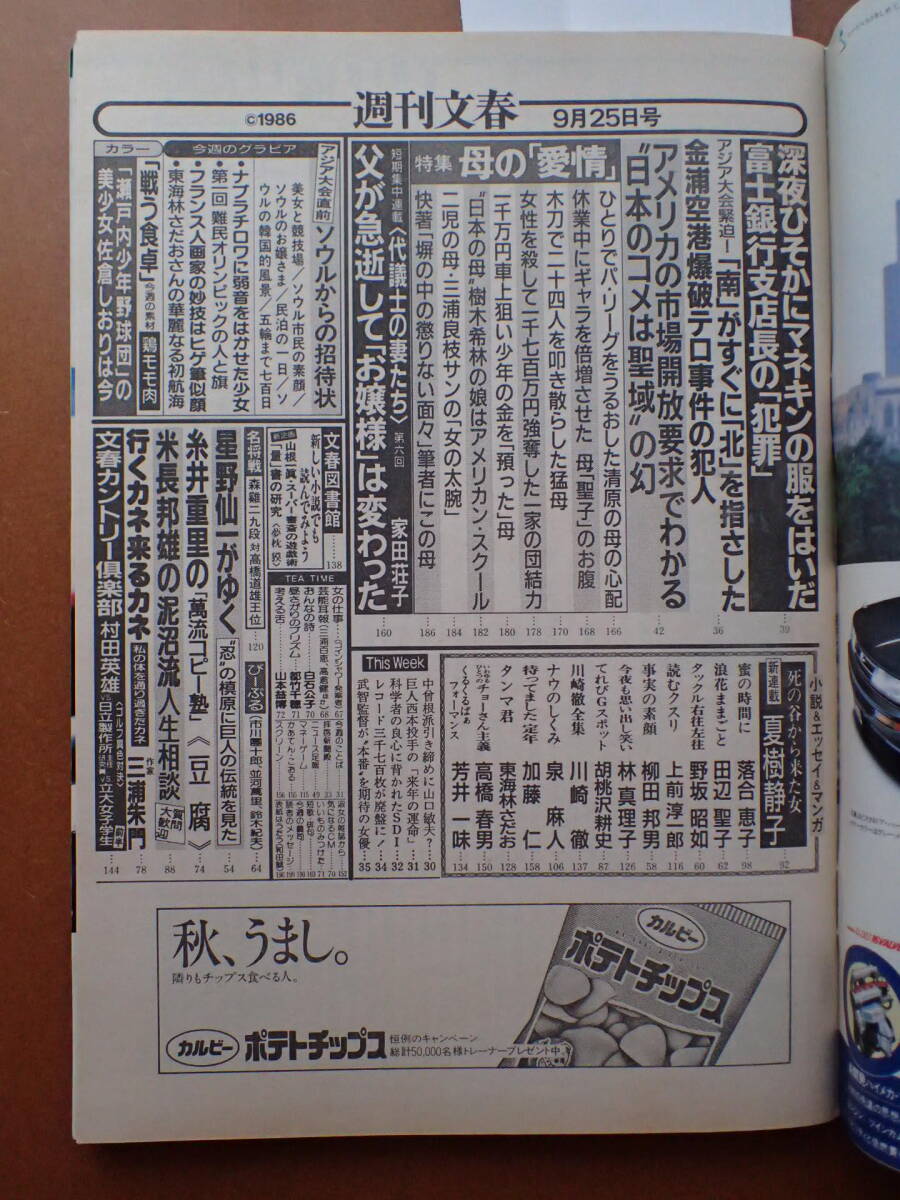 ©1986
週刊文春
9月25日号
深夜ひそかにマネキンの服をはいだ
富士銀行支店長の「犯罪」
39
アジア大会緊迫!「南」がすぐに「北」を指さした
金浦空港爆破テロ事件の犯人
36
アメリカの市場開放要求でわかる
“日本のコメは聖域”の幻
42
特集 母の「愛情」
ひとりでパ・リーグをうるおした清原の母の心配
166
休業中にギャラを倍増させた 母「聖子」のお腹
168
木刀で二十四人を叩き散らした猛母
170
女性を殺して一千七百万円強奪した一家の団結力
178
二千万円車上狙い少年の金を「預った」母
180
“日本の母”樹木希林の娘はアメリカン・スクール
182
二児の母・三浦良枝サンの「女の太腕」
184
快著「塀の中の懲りない面々」筆者にこの母
186
短期集中連載〈代議士の妻たち〉第六回 家田荘子
父が急逝して「お嬢様」は変わった
160
今週のグラビア
アジア大会直前 ソウルからの招待状
美女と競技場/ソウル市民の素顔/
ソウルのお嬢さま/民泊の一日/ソ
ウルの韓国的風景/五輪まで七百日
・ナブラチロワに弱音をはかせた少女
・第一回難民オリンピックの人と旗
・フランス人画家の妙技はヒゲ筆似顔
・東海林さだおさんの華麗なる初航海
カラー
「戦う食卓」今週の素材 鶏モモ肉
「瀬戸内少年野球団」の
美少女 佐倉しおりは今
小説&エッセイ&マンガ
死の谷から来た女
新連載 夏樹静子
92
蜜の時間に 落合恵子
98
浪花ままごと 田辺聖子
62
タックル右往左往 野坂昭如
60
読むクスリ 上前淳一郎
116
事実の素顔 柳田邦男
58
今夜も思い出し笑い 林真理子
126
てれびGスポット 胡桃沢耕史
87
川崎徹全集 川崎徹
137
ナウのしくみ 泉麻人
106
待ってました定年 加藤仁
158
タンマ君 東海林さだお
128
チョーさん主義 高橋春男
150
くるくるぱぁ フォーマンス 芳井一味
134
This Week
中曾根派引き締めに山口敏夫? 30
巨人西本投手の「来年の運命」 31
科学者の良心に背かれたSDI 32
レコード三千七百枚が廃盤に! 34
武智監督が“本番”を期待の女優 35
文春図書館
138
新しい小説でも
読んでみよう
山根一眞・スーパー書斎の遊戯術
「量」書の研究〈夢枕獏〉
名将戦 森雞二九段 対 高橋道雄王位
120
TEA TIME
女の仕事 67
芸能耳報 68
おんなの詩 白石公子 70
昼さがりのプリズム 都竹千穂 71
考える舌 山本益博 72
今週のことば 31
ニュース足報
マネーゲーム
かあてん・こおる
スクリーン
淑女の雑誌から
気になるCM
いいものみつけた
短歌・俳句
今週の裏司
読者のメッセージ
ぴーぷる(市川團十郎、並河萬里、鈴木紀夫) 64
星野仙一がゆく 「忍」の槙原に巨人の伝統を見た
54
糸井重里の「萬流コピー塾」〈豆腐〉
74
米長邦雄の泥沼流人生相談 質問大歓迎
88
行くカネ来るカネ 私の体を通り過ぎたカネ 作家 三浦朱門
78
文春カントリー倶楽部 〈ゴルフ異色対決〉 村田英雄 vs 日立製作所 vs 立大女子学生
144
秋、うまし。
隣りもチップス食べる人。
カルビー ポテトチップス
恒例のキャンペーン
総計50,000名様トレーナープレゼント中。
カルビー
ポテトチップス